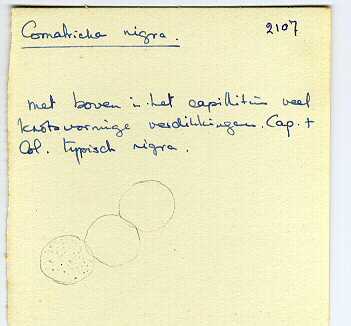 Comatricha nigra. 2107
met boven in het capillitium veel
knotsvormige verdikkingen. Cap. +
Col. typisch nigra.